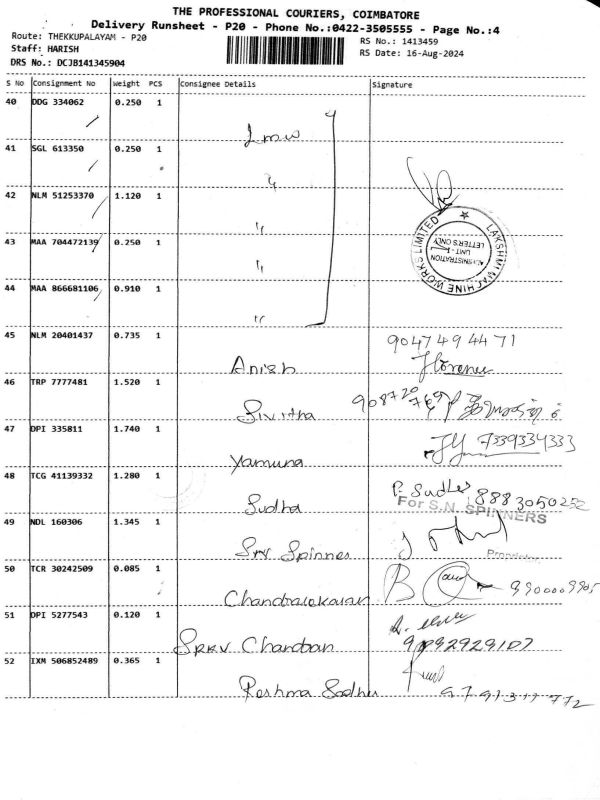 THE PROFESSIONAL COURIERS, COIMBATORE
Delivery Runsheet - P20 - Phone No.:0422-3505555 - Page No.:4
Route: THEKKUPALAYAM - P20
RS No.: 1413459
Staff: HARISH
RS Date: 16-Aug-2024
DRS No.: DCJB141345904
S No Consignment No Weight PCS Consignee Details Signature
40 DDG 334062 0.250 1
Lmw
41 SGL 613350 0.250 1
42 NLM 51253370 1.120 1
LAKSHMI MACHINE WORKS LIMITED
ADMINISTRATION
UNIT - 1
LETTERS ONLY
43 MAA 704472139 0.250 1
44 MAA 866681106 0.910 1
45 NLM 20401437 0.735 1
9047494471
Anish Florence
46 TRP 7777481 1.520 1
Sivitha
47 DPI 335811 1.740 1
7339334333
Yamuna
48 TCG 41139332 1.280 1
Sudha 8883050252
For S.N. SPINNERS
49 NDL 160306 1.345 1
Spinnes
Proprietor
50 TCR 30242509 0.085 1
51 DPI 5277543 0.120 1
Chandban
52 IXM 506852489 0.365 1
Reshma Sadhu